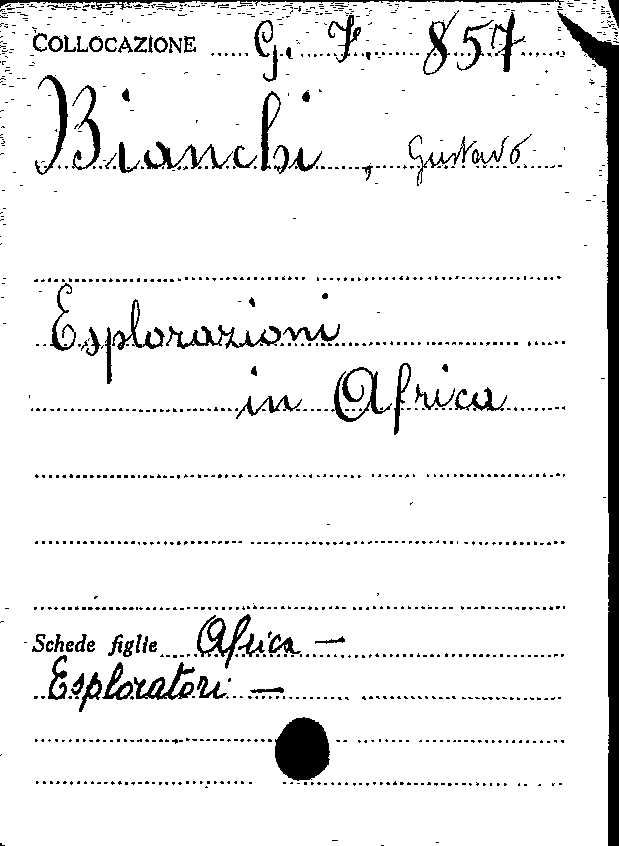 COLLOCAZIONE G. F. 857
Bianchi, Gustavo
Esplorazioni
in Africa
Schede figlie Africa —
Esploratori —